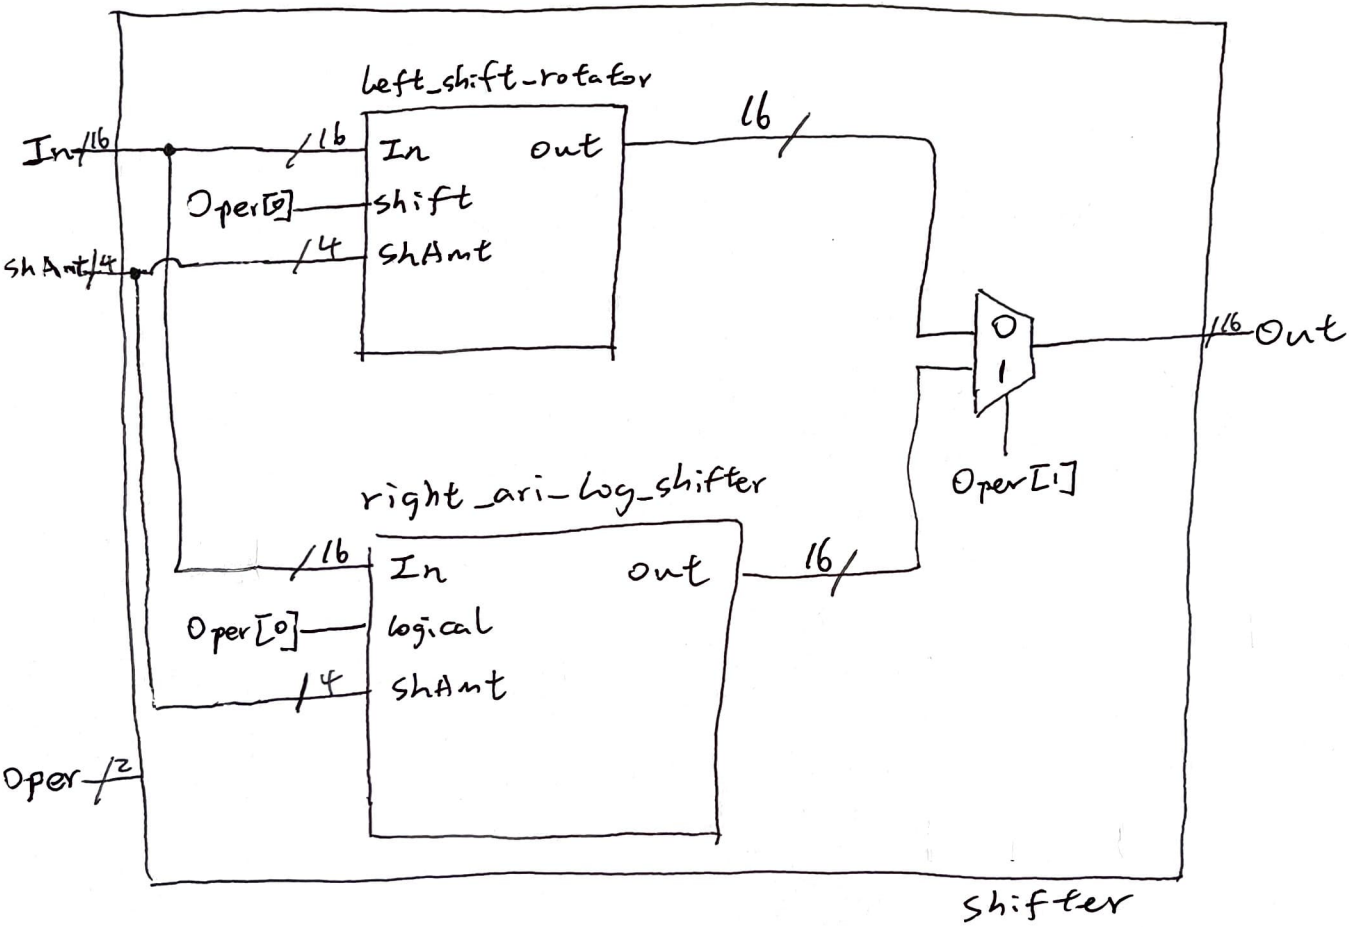 left_shift-rotator
In 16
16 In
out 16
Oper[0] shift
ShAmt 4
4 ShAmt
0
1
16 Out
Oper[1]
right_ari-log_shifter
16 In
out 16
Oper[0] logical
4 ShAmt
Oper 2
shifter